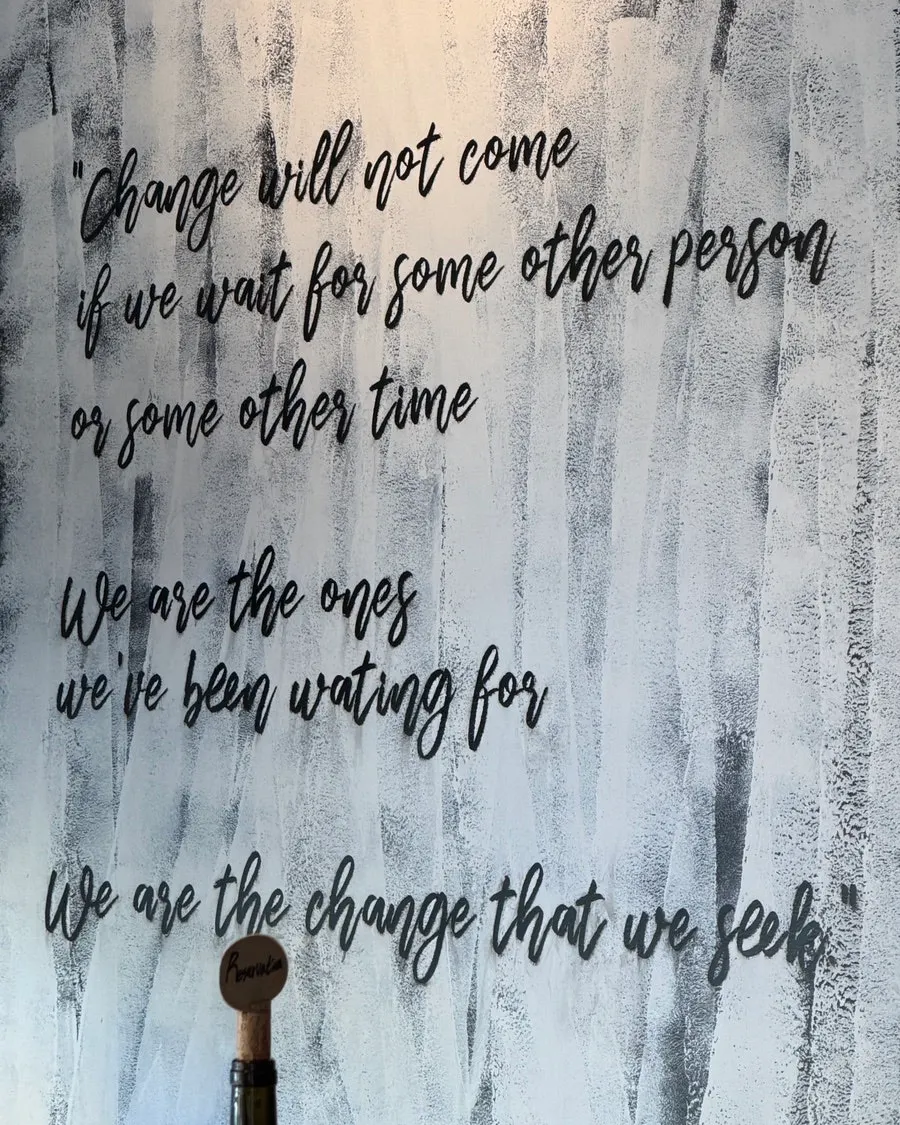 "Change will not come
if we wait for some other person
or some other time
We are the ones
we've been wating for
We are the change that we seek"
Reservation